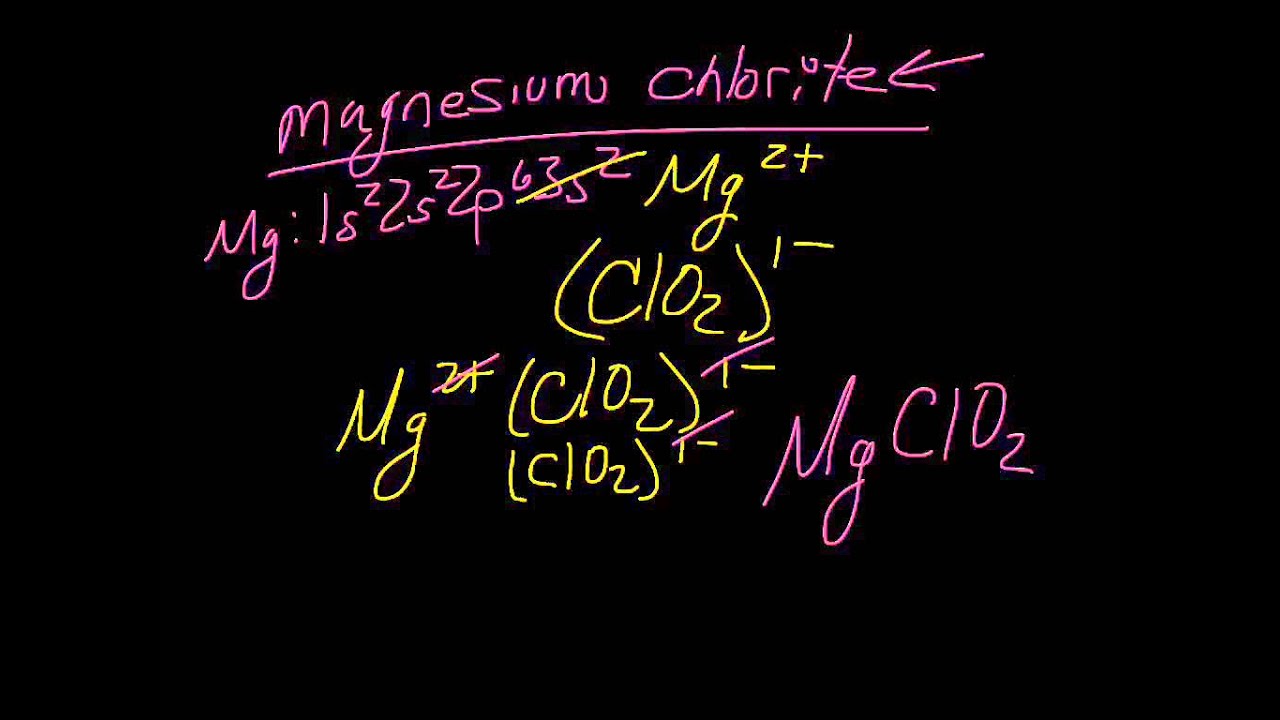 magnesium chlorite
Mg: 1s²2s²2p⁶3s² Mg²⁺
(ClO₂)¹⁻
Mg²⁺ (ClO₂)¹⁻
(ClO₂)¹⁻
MgClO₂